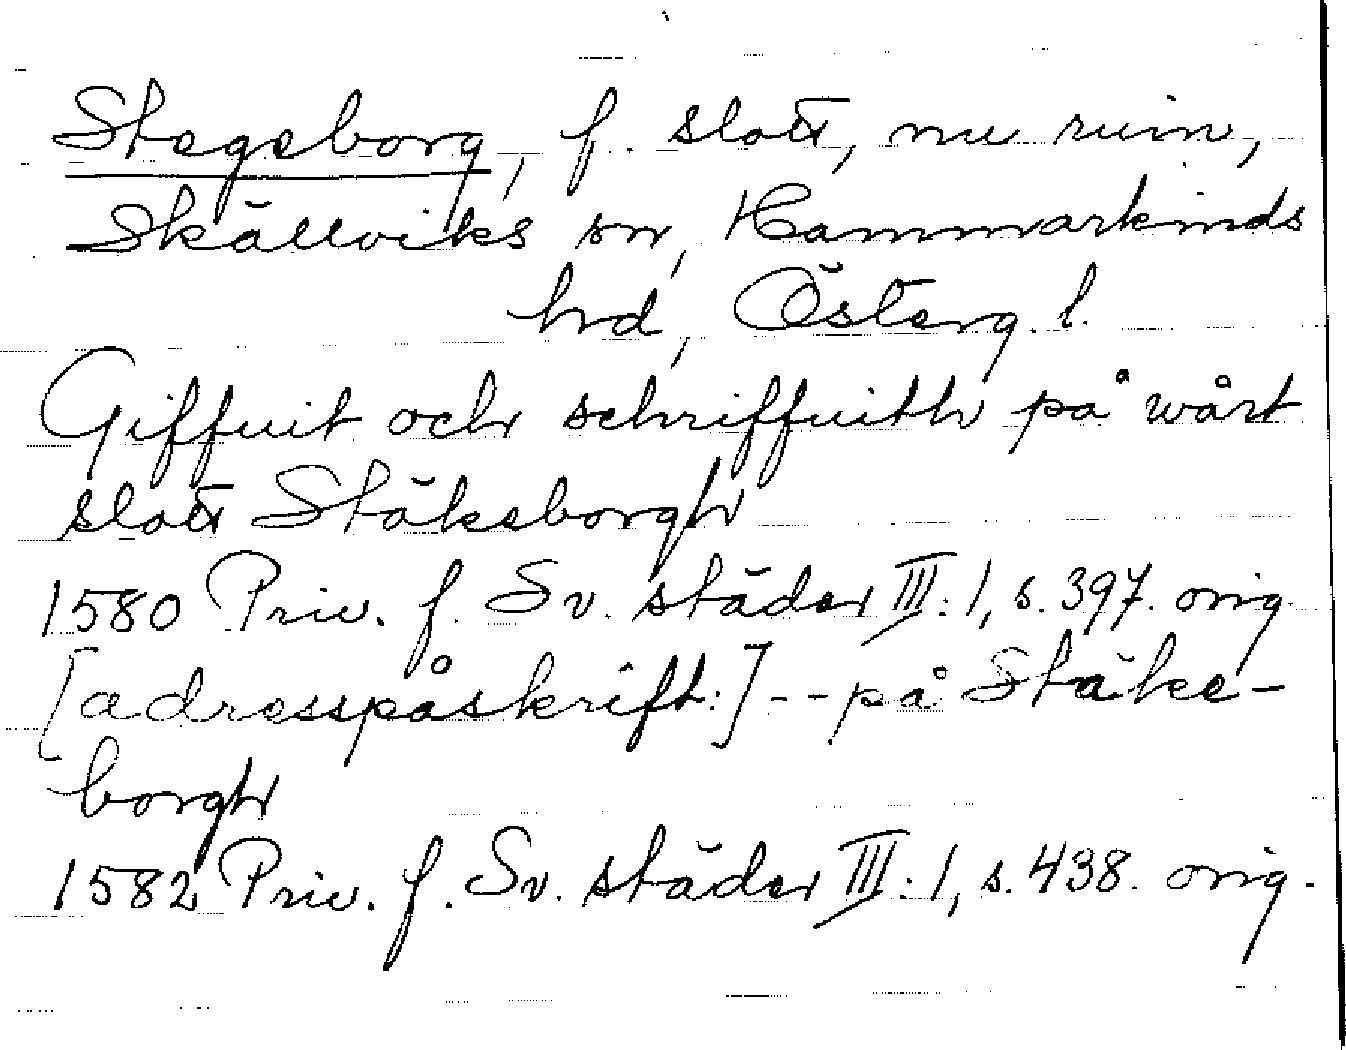 Stegeborg, f. slott, nu ruin,
Skällviks sn, Hammarkinds
hd, Österg. l.
Giffuit och schriffuith på wårt
slott Stäkeborgh
1580 Priv. f. Sv. städer III:1, s. 397. orig.
[adresspåskrift:] -- på Stäke-
borgh
1582 Priv. f. Sv. städer III:1, s. 438. orig.